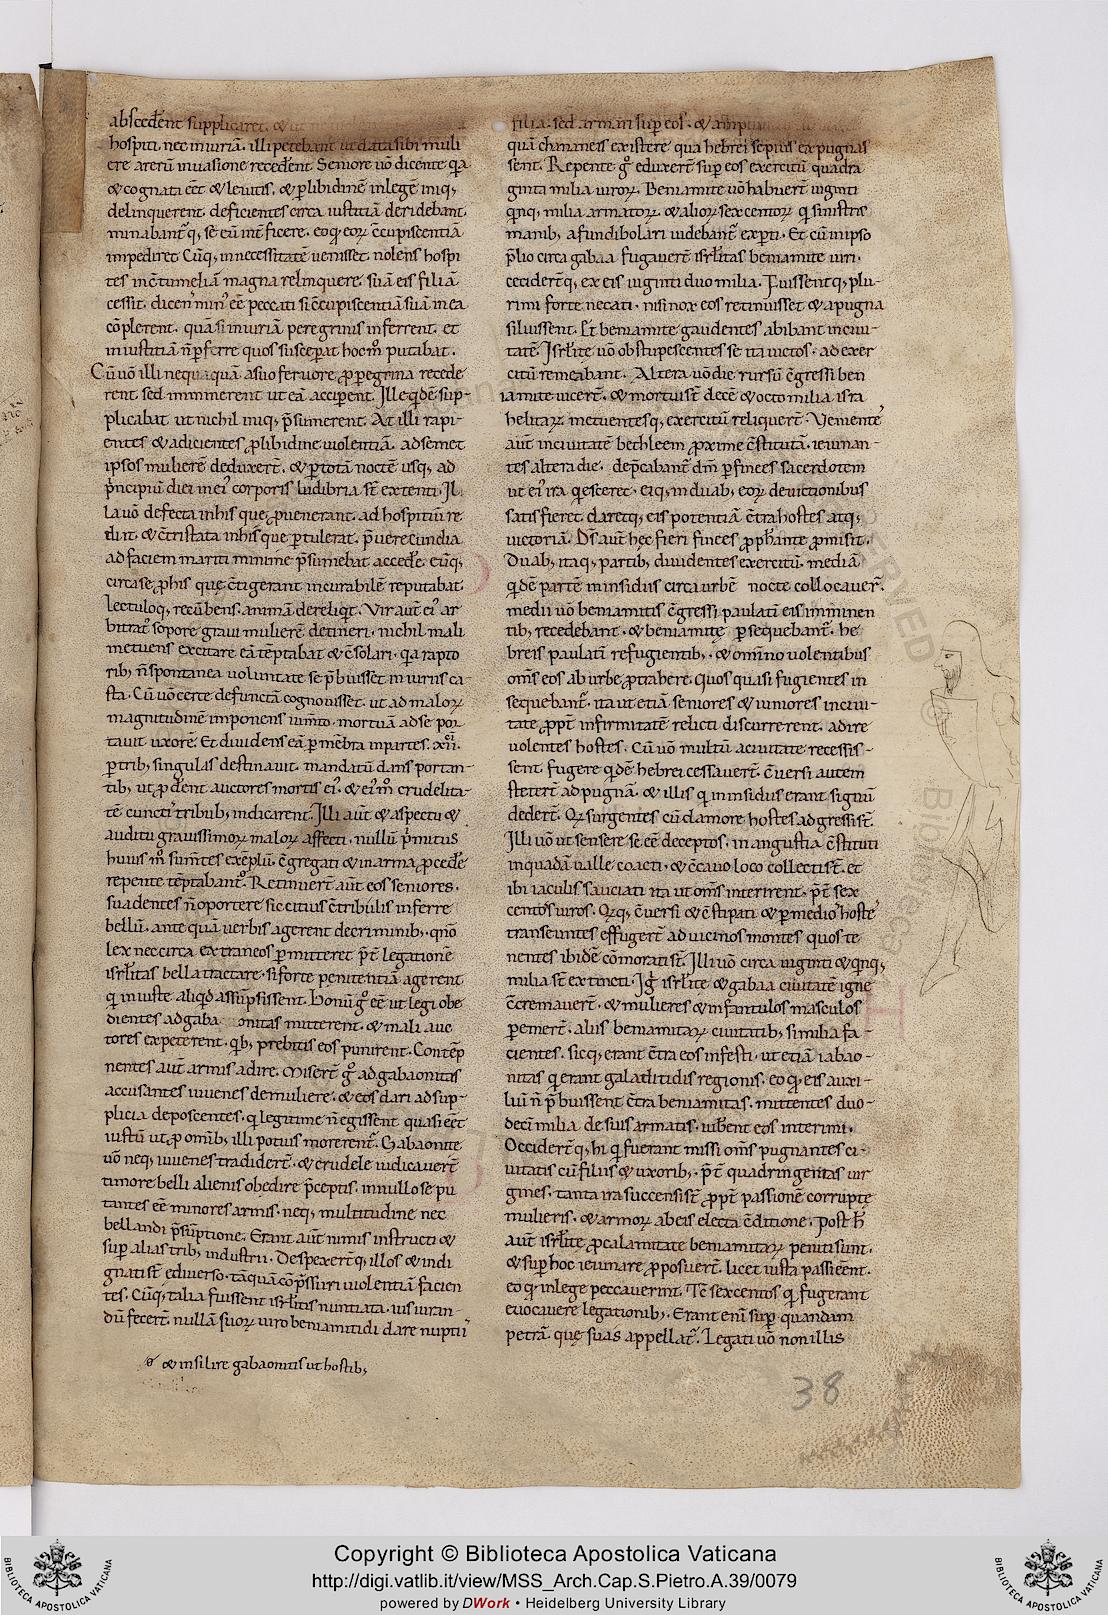 abscederent supplicaret. & ut
hospiti. nec iniuriā. illi petebant ut data sibi muli
ere ateru inuasione recederent. Seniore uō dicente qa
& cognata eēt & leuitis. & p libidinē in legē iniq,
delinquerent. deficientes circa iustitiā deridebant.
minabantq, se eū int̄ficere. eoq eoꝝ ccupiscentiā
impediret. Cūq, in necessitatē uenisset. nolens hospi
tes in ctumeliā magna relinquere. suā eis filiā
cessit. dicens min eē peccati si ccupiscentiā suā in ea
cōplerent. quā si iniuriā peregrinis inferrent. et
iniustitiā n pferre quos suscepat hoc m putabat.
Cū uō illi nequaquā a suo feruore p peregrina recede
rent. sed imminerent ut eā acciperent. Ille qdē sup-
plicabat ut nichil iniq, psumerent. At illi rapi-
entes & adicientes p libidine uiolentiā. ad semet
ipsos mulierē deduxert. & p totā noctē usq, ad
pncipiū diei in ei corporis ludibria st extenti. Il
la uō defecta in his que puenerant. ad hospitiū re
diit. & ctristata in his que ptulerat. p uerecundia
ad faciem mariti minime psumebat accedere. eūq,
circa se p his quę ctigerant incurabilē reputabat.
lectuloq, recūbens. animā dereliqt. Vir aut ei ar
bitrat sopore graui mulierē detineri. nichil mali
metuens excitare eā tēptabat & c solari. qa rapto
rib, n spontanea uoluntate se pbuisset in iuriis ca
sta. Cū uō certe defunctā cognouisset. ut ad maloꝝ
magnitudinē imponens iumto. mortuā ad se por
tauit uxorē. Et diuidens eā p mēbra in partes. xii.
p trib, singulas destinauit. mandatū dans portan-
tib, ut pderent auctores mortis ei. & ei m crudelita-
tē cuncti tribub, indicarent. Illi aut & aspectu &
auditu grauissimoꝝ maloꝝ affecti. nullū pmitus
huius m sumtes exēplū. cgregati & in arma pcedere
repente tēptabant. Retinuert aut eos seniores.
suadentes n oportere sic citius ctribulis inferre
bellū. ante quā uerbis agerent de criminib,. qno
lex nec circa extraneos pmitteret pt legationē
isrlitas bella tractare. si forte penitentiā agerent
q iniuste aliqd assūpsissent. Bonū g eē ut legi obe
dientes ad gaba onitas mitterent. & mali auc
tores expeterent. qb, prebitis eos punirent. Contēp
nentes aut armis adire. Misert g ad gabaonitas
accusantes iuuenes de muliere. & eos dari ad sup-
plicia deposcentes. q legitime n egissent. quasi eēt
iustū ut p omib, illi potius morerent. Gabaonite
uō neq, iuuenes tradidert. & crudele iudicauert
timore belli alienis obedire pceptis. in nullo se pu
tantes eē minores armis. neq, multitudine nec
bellandi psūptione. Erant aut nimis instructi &
sup alias trib, industrii. Despexertq, illos & indi
gnati st e diuerso. tāquā cōpssuri uiolentiā facien
tes. Cūq, talia fuissent isrlitis nuntiata. ius iuran-
dū fecert. nullā suoꝝ uiro beniamitidi dare nuptū
& insilire gabaonitis ut hostib,
filia. sed armari sup eos. & ampliori
quā chananeis existere qua hebrei sepius expugnas
sent. Repente g eduxert sup eos exercitū quadra
ginta milia uiroꝝ. Beniamite uō habuert uiginti
qnq, milia armatoꝝ. & alioꝝ sexcentoꝝ q sinistris
manib, a fundibolari uidebant expti. Et cū in ipso
plio circa gabaa fugauert isrlitas beniamite uiri.
cecidertq, ex eis uiginti duo milia. Fuissentq, plu-
rimi forte necati. nisi nox eos retinuisset & a pugna
siluissent. Et beniamite gaudentes abibant in ciui-
tatē. Isrlite uō obstupescentes se ita uictos. ad exer
citū remeabant. Altera uō die rursū cgressi ben
iamite uicert. & mortui st decē & octo milia isra
helitaꝝ. metuentesq, exercitū reliquert. Venientes
aut in ciuitatē bethleem proxime cstitutā. ieiunan-
tes altera die. depcabant dm p finees sacerdotem
ut ei ira qesceret. eiq, in duab, eoꝝ deuictionibus
satisfieret. daretq, eis potentiā ctra hostes atq,
uictoriā. Ds aut hęc fieri finees pphante pmisit.
Duab, itaq, partib, diuidentes exercitū. mediā
qdē partē in insidiis circa urbē nocte collocauert.
medii uō beniamitis cgressi paulatī eis imminen
tib, recedebant. & beniamitę psequebant. he
breis paulatī refugientib,. & omino uolentibus
oms eos ab urbe ptrahere. Quos quasi fugientes in
sequebant. ita ut etiā seniores & iuniores in ciui-
tate ppt infirmitatē relicti discurrerent. adire
uolentes hostes. Cū uō multū a ciuitate recessis-
sent. fugere qdē hebrei cessauert. cuersi autem
stetert ad pugnā. & illis q in insidiis erant signū
dedert. Qi surgentes cū clamore hostes adgressi st.
Illi uō ut sensere se eē deceptos. in angustia cstituti
in quadā ualle coacti. & ccauo loco collecti st. et
ibi iaculis sauciati ita ut oms interirent. pt sex
centos uiros. Qiq, cuersi & cstipati & p medios hostes
transeuntes effugert ad uicinos montes quos te
nentes ibidē cōmorati st. Illi uō circa uiginti & qnq,
milia st extincti. Ig isrlite & gabaa ciuitatē igne
ccremauert. & mulieres & infantulos masculos
pemert. aliis beniamitaꝝ ciuitatib, similia fa-
cientes. sicq, erant ctra eos infesti. ut etiā iabao-
nitas q erant galaditidis regionis. eo q eis auxi-
liū n pbuissent ctra beniamitas. mittentes duo-
decī milia de suis armatis. iuberent eos interimi.
Occidertq, hi q fuerant missi oms pugnantes ci-
uitatis cū filiis & uxorib,. pt quadringentas uir
gines. tanta ira succensi st ppt passionē corruptę
mulieris. & armoꝝ ab eis electa cditione. Post h
aut isrlite p calamitate beniamitaꝝ penitisunt.
& sup hoc ieiunare pposuert. licet iusta passi eent.
eo q in lege peccauerint. Tc sexcentos q fugerant
euocauere legationib,. Erant eni sup quandam
petrā. quę suas appellat. Legati uō non illis
38
Copyright © Biblioteca Apostolica Vaticana
http://digi.vatlib.it/view/MSS_Arch.Cap.S.Pietro.A.39/0079
powered by DWork • Heidelberg University Library